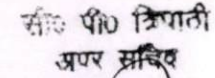 सी० पी० त्रिपाठी
अपर सचिव